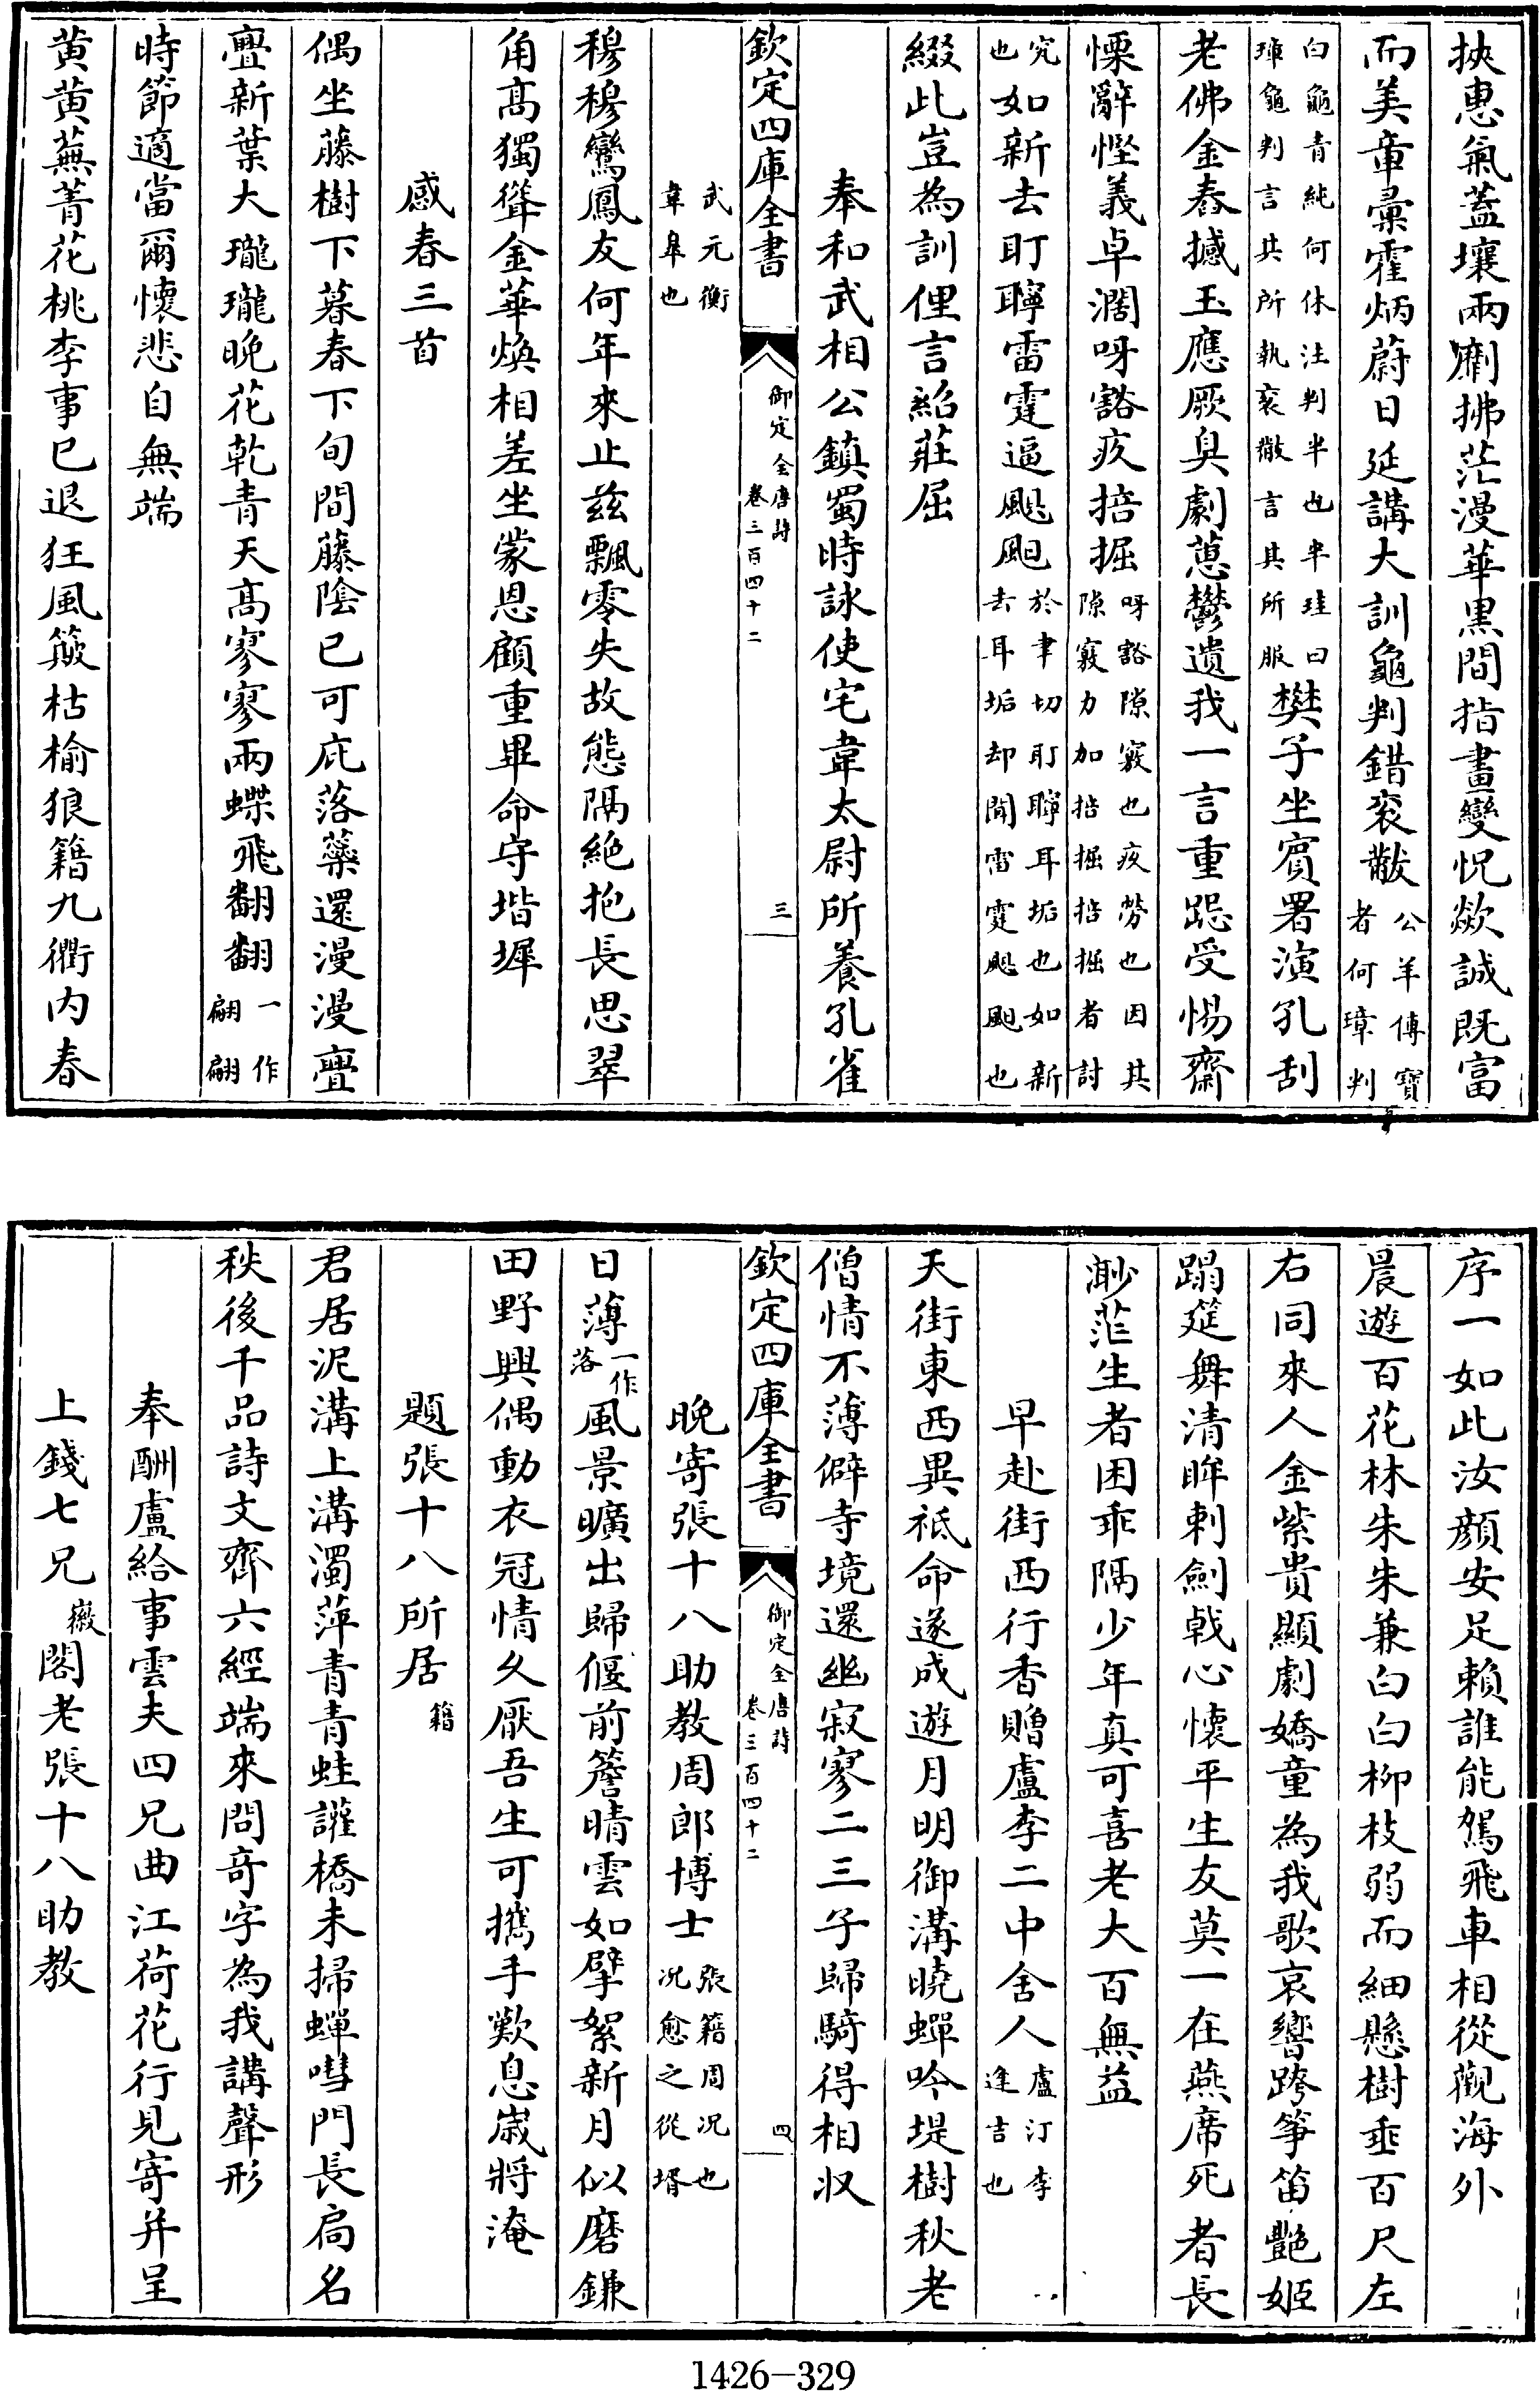 挾惠氣蓋壤兩劘拂茫漫華黒間指畫變怳欻誠既富
而美章彚霍炳蔚日延講大訓龜判錯衮黻公羊傳寶者何璋判
白龜青純何休注判半也半珪曰璋龜判言其所執衮黻言其所服樊子坐賔署演孔刮
老佛金舂撼玉應厥臭劇蕙鬱遺我一言重跽受惕齋
慄辭慳義卓濶呀豁疚掊掘呀豁隙竅也疚勞也因其隙竅力加掊掘掊掘者討
究也如新去耵聹雷霆逼颶䬍於聿切耵聹耳垢也如新去耳垢却聞雷霆颶䬍也
綴此豈為訓俚言紹莊屈
奉和武相公鎮蜀時詠使宅韋太尉所養孔雀
欽定四庫全書
御定全唐詩
卷三百四十二
三
武元衡韋臯也
穆穆鸞鳳友何年來止兹飄零失故態隔絶抱長思翠
角髙獨聳金華煥相差坐蒙恩顧重畢命守堦墀
感春三首
偶坐藤樹下暮春下旬間藤陰已可庇落蘂還漫漫亹
亹新葉大瓏瓏晩花乾青天髙寥寥兩蝶飛翻翻一作翩翩
時節適當爾懷悲自無端
黄黄蕪菁花桃李事已退狂風簸枯榆狼籍九衢内春
序一如此汝顔安足賴誰能駕飛車相從觀海外
晨遊百花林朱朱兼白白柳枝弱而細懸樹垂百尺左
右同來人金紫貴顯劇嬌童為我歌哀響跨筝笛艶姬
蹋筵舞清眸刺劍戟心懷平生友莫一在燕席死者長
渺茫生者困乖隔少年真可喜老大百無益
早赴街西行香贈盧李二中舍人盧汀李逢吉也
天街東西異祗命遂成遊月明御溝曉蟬吟堤樹秋老
僧情不薄僻寺境還幽寂寥二三子歸騎得相収
欽定四庫全書
御定全唐詩
卷三百四十二
四
晩寄張十八助教周郎博士張籍周况也况愈之從壻
日薄一作落風景曠出歸偃前簷晴雲如擘絮新月似磨鎌
田野興偶動衣冠情久厭吾生可攜手歎息嵗將淹
題張十八所居籍
君居泥溝上溝濁萍青青蛙讙橋未掃蟬嘒門長扃名
秩後千品詩文齊六經端來問竒字為我講聲形
奉酬盧給事雲夫四兄曲江荷花行見寄并呈
上錢七兄徽閣老張十八助教
1426-329